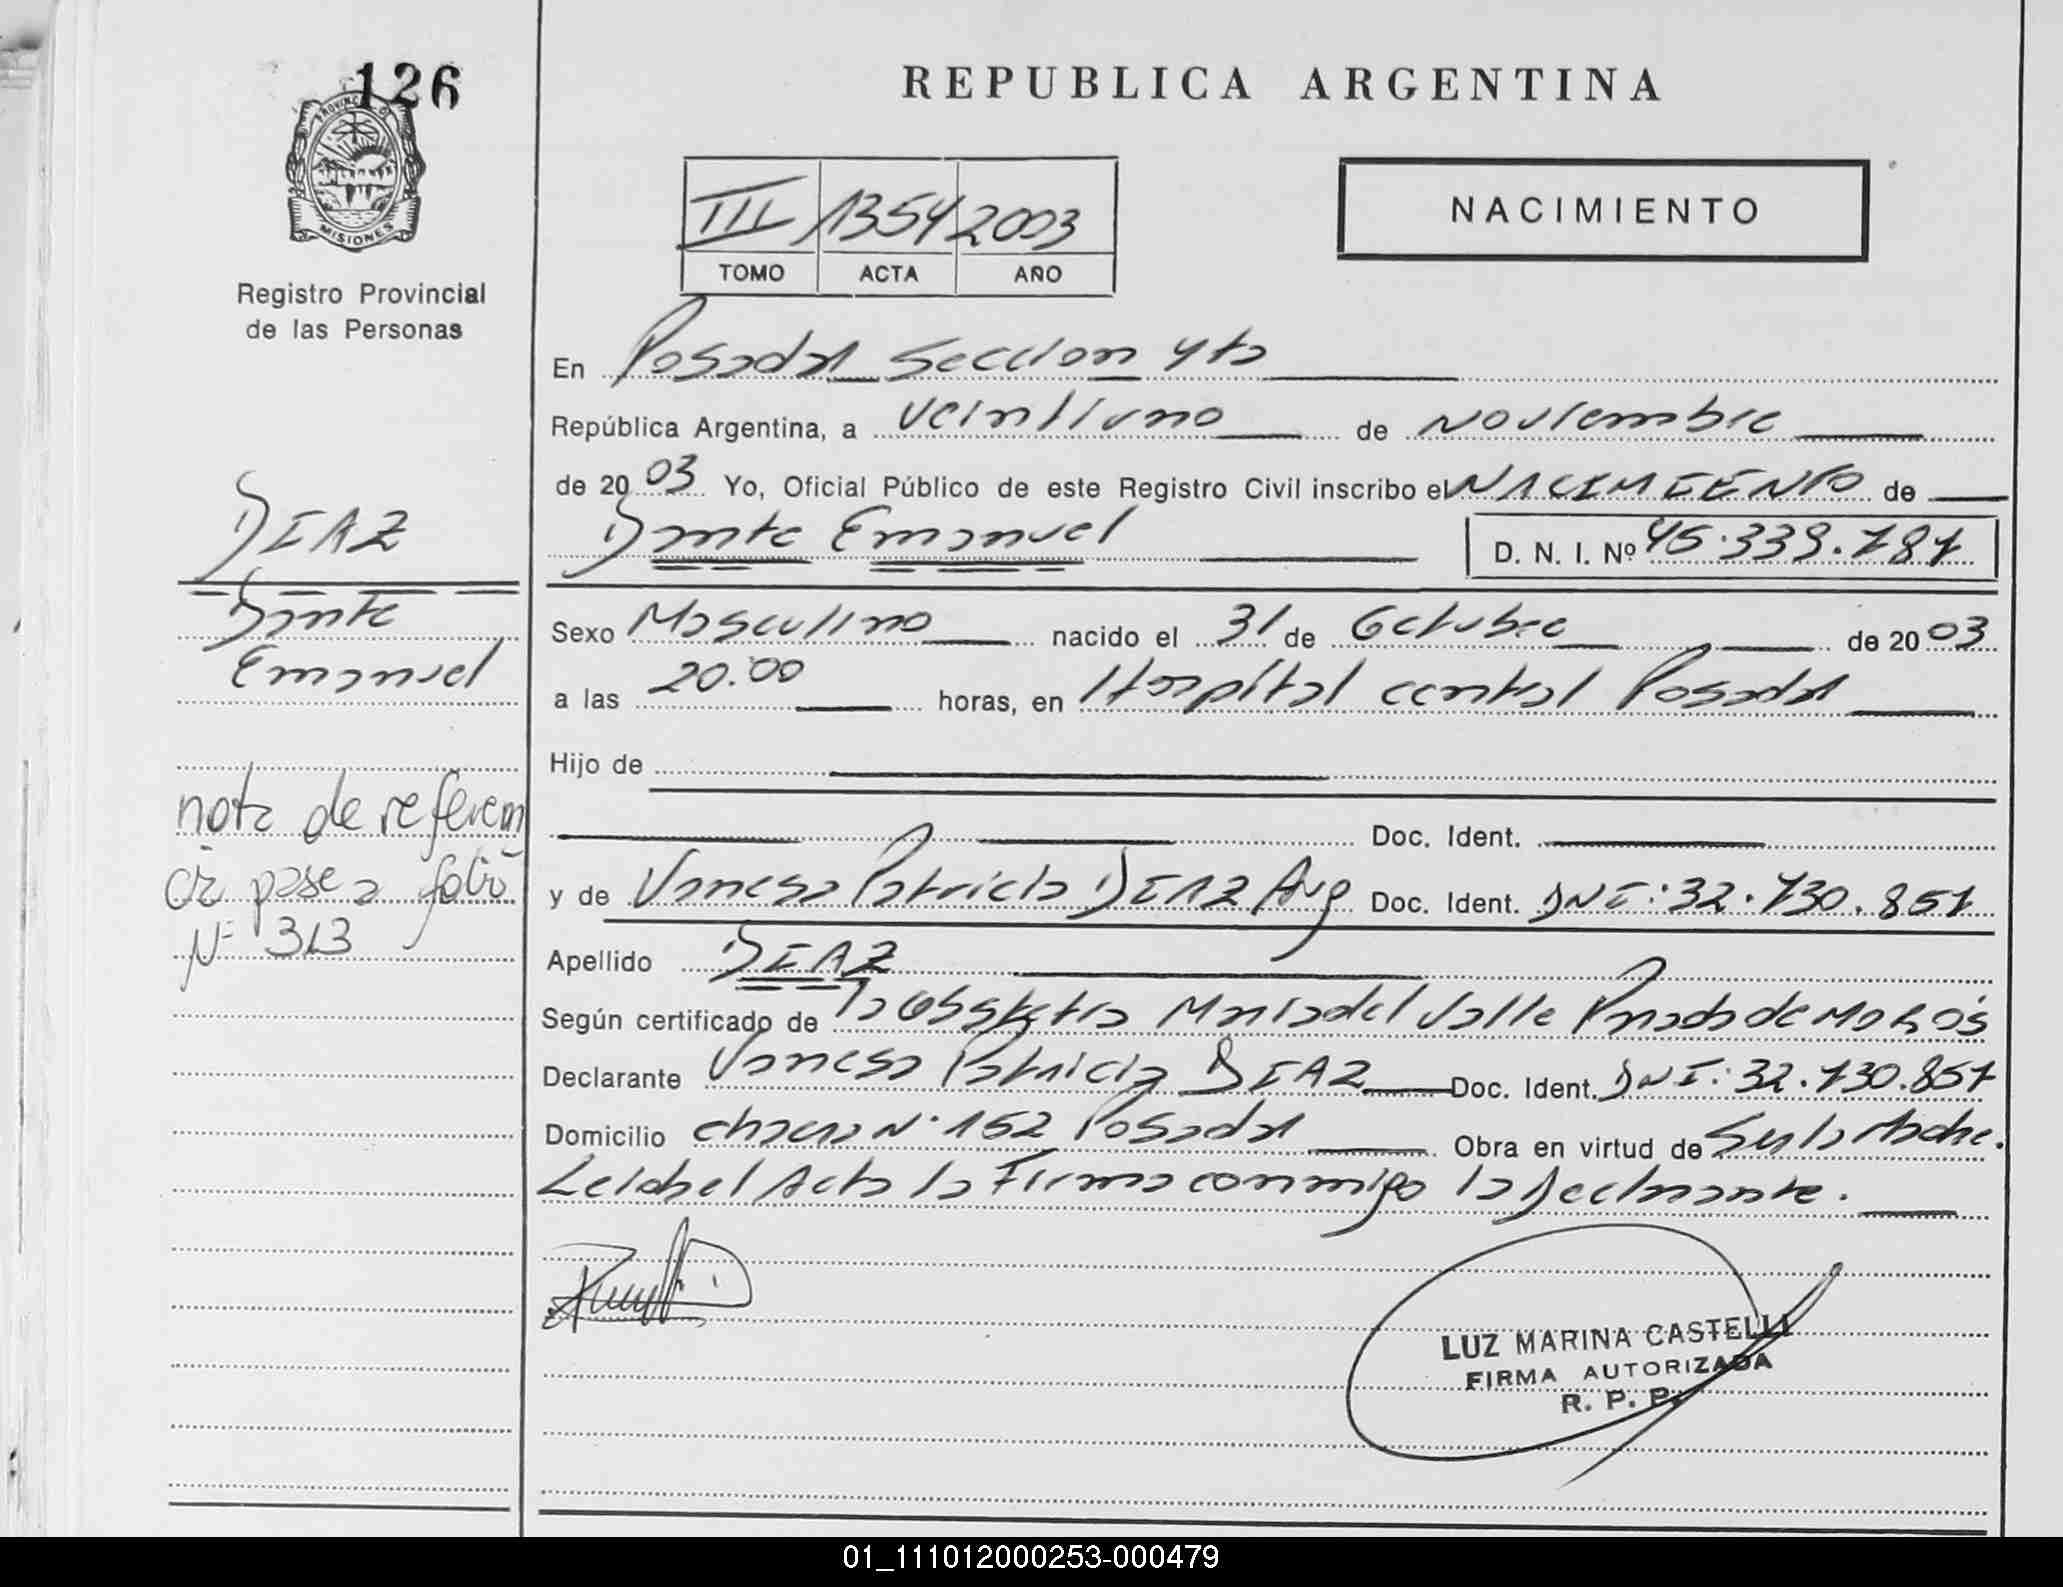 126
PROVINCIA DE
MISIONES
Registro Provincial
de las Personas
DIAZ
Dante
Emanuel
nota de referen
cia pase a folio
Nº 313
REPUBLICA ARGENTINA
III 1354 2003
TOMO ACTA AÑO
NACIMIENTO
En Posadas Seccion 4ta
República Argentina, a veintiuno de noviembre
de 2003 Yo, Oficial Público de este Registro Civil inscribo el NACIMIENTO de
Dante Emanuel D. N. I. Nº 45.339.787
Sexo Masculino nacido el 31 de Octubre de 2003
a las 20:00 horas, en Hospital central Posadas
Hijo de
Doc. Ident.
y de Vanesa Patricia DIAZ Arg Doc. Ident. DNI: 32.730.857
Apellido DIAZ
Según certificado de la Obstetra Maria del Valle de
Declarante Vanesa Patricia DIAZ Doc. Ident. DNI: 32.730.857
Domicilio chacra Nº 152 Posadas Obra en virtud de Ser la Madre.
Leida el Acta la Firma conmigo la Declarante.
LUZ MARINA CASTELLI
FIRMA AUTORIZADA
R. P. P.
01_111012000253-000479